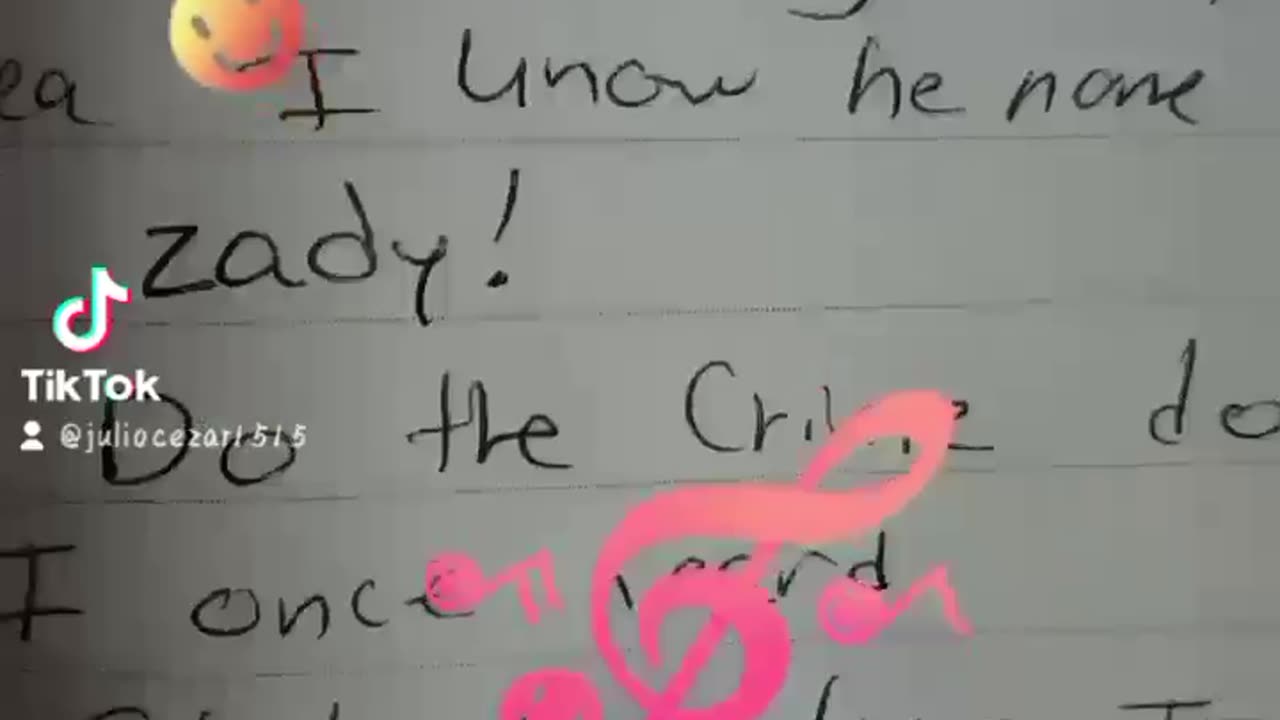 I know he name
zady!
TikTok
@juliocezar1515
Do the Crime do
I once heard